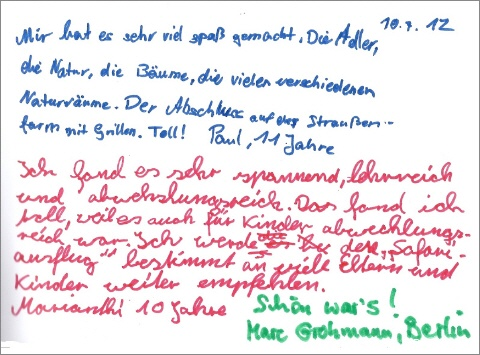 10.7.12
Mir hat es sehr viel spaß gemacht. Die Adler,
die Natur, die Bäume, die vielen verschiedenen
Naturräume. Der Abschluss auf der Straußen-
farm mit Grillen. Toll! Paul, 11 Jahre
Ich fand es sehr spannend, lehrreich
und abwechslungsreich. Das fand ich
toll, weil es auch für Kinder abwechlungs-
reich war. Ich werde den "Safari-
ausflug" bestimmt an viele Eltern und
Kinder weiter empfehlen.
Marianthi 10 Jahre
Schön war's!
Marc Grohmann, Berlin